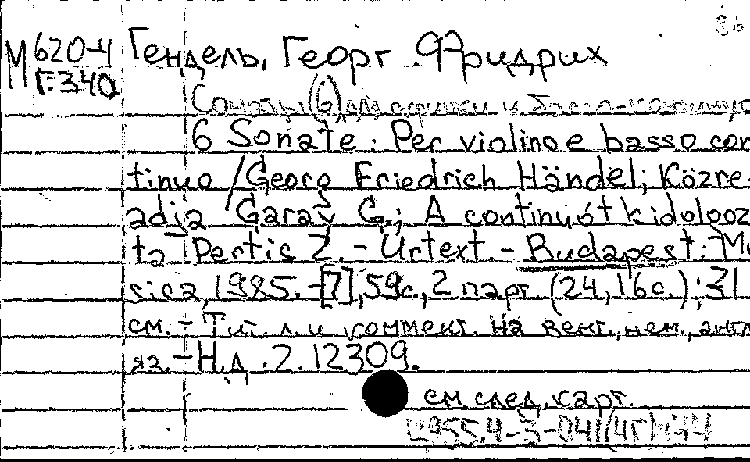 86
М 620-4 Гендель, Георг Фридрих
Г.340
Сонаты (6) для скрипки и басса-континуо
6 Sonate : Per violino e basso con-
tinuo / Georg Friedrich Händel; Közre-
adja Garay G.; A continuót kidolgoz-
ta Pertis Z. - Urtext - Budapest: Mu
sica, 1985. - [7], 59с., 2 парт. (24, 16с.); 31
см. - Тит. л. и коммент. на венг., нем., англ
яз. - Н.д. Z. 12309.
см. след. карт.